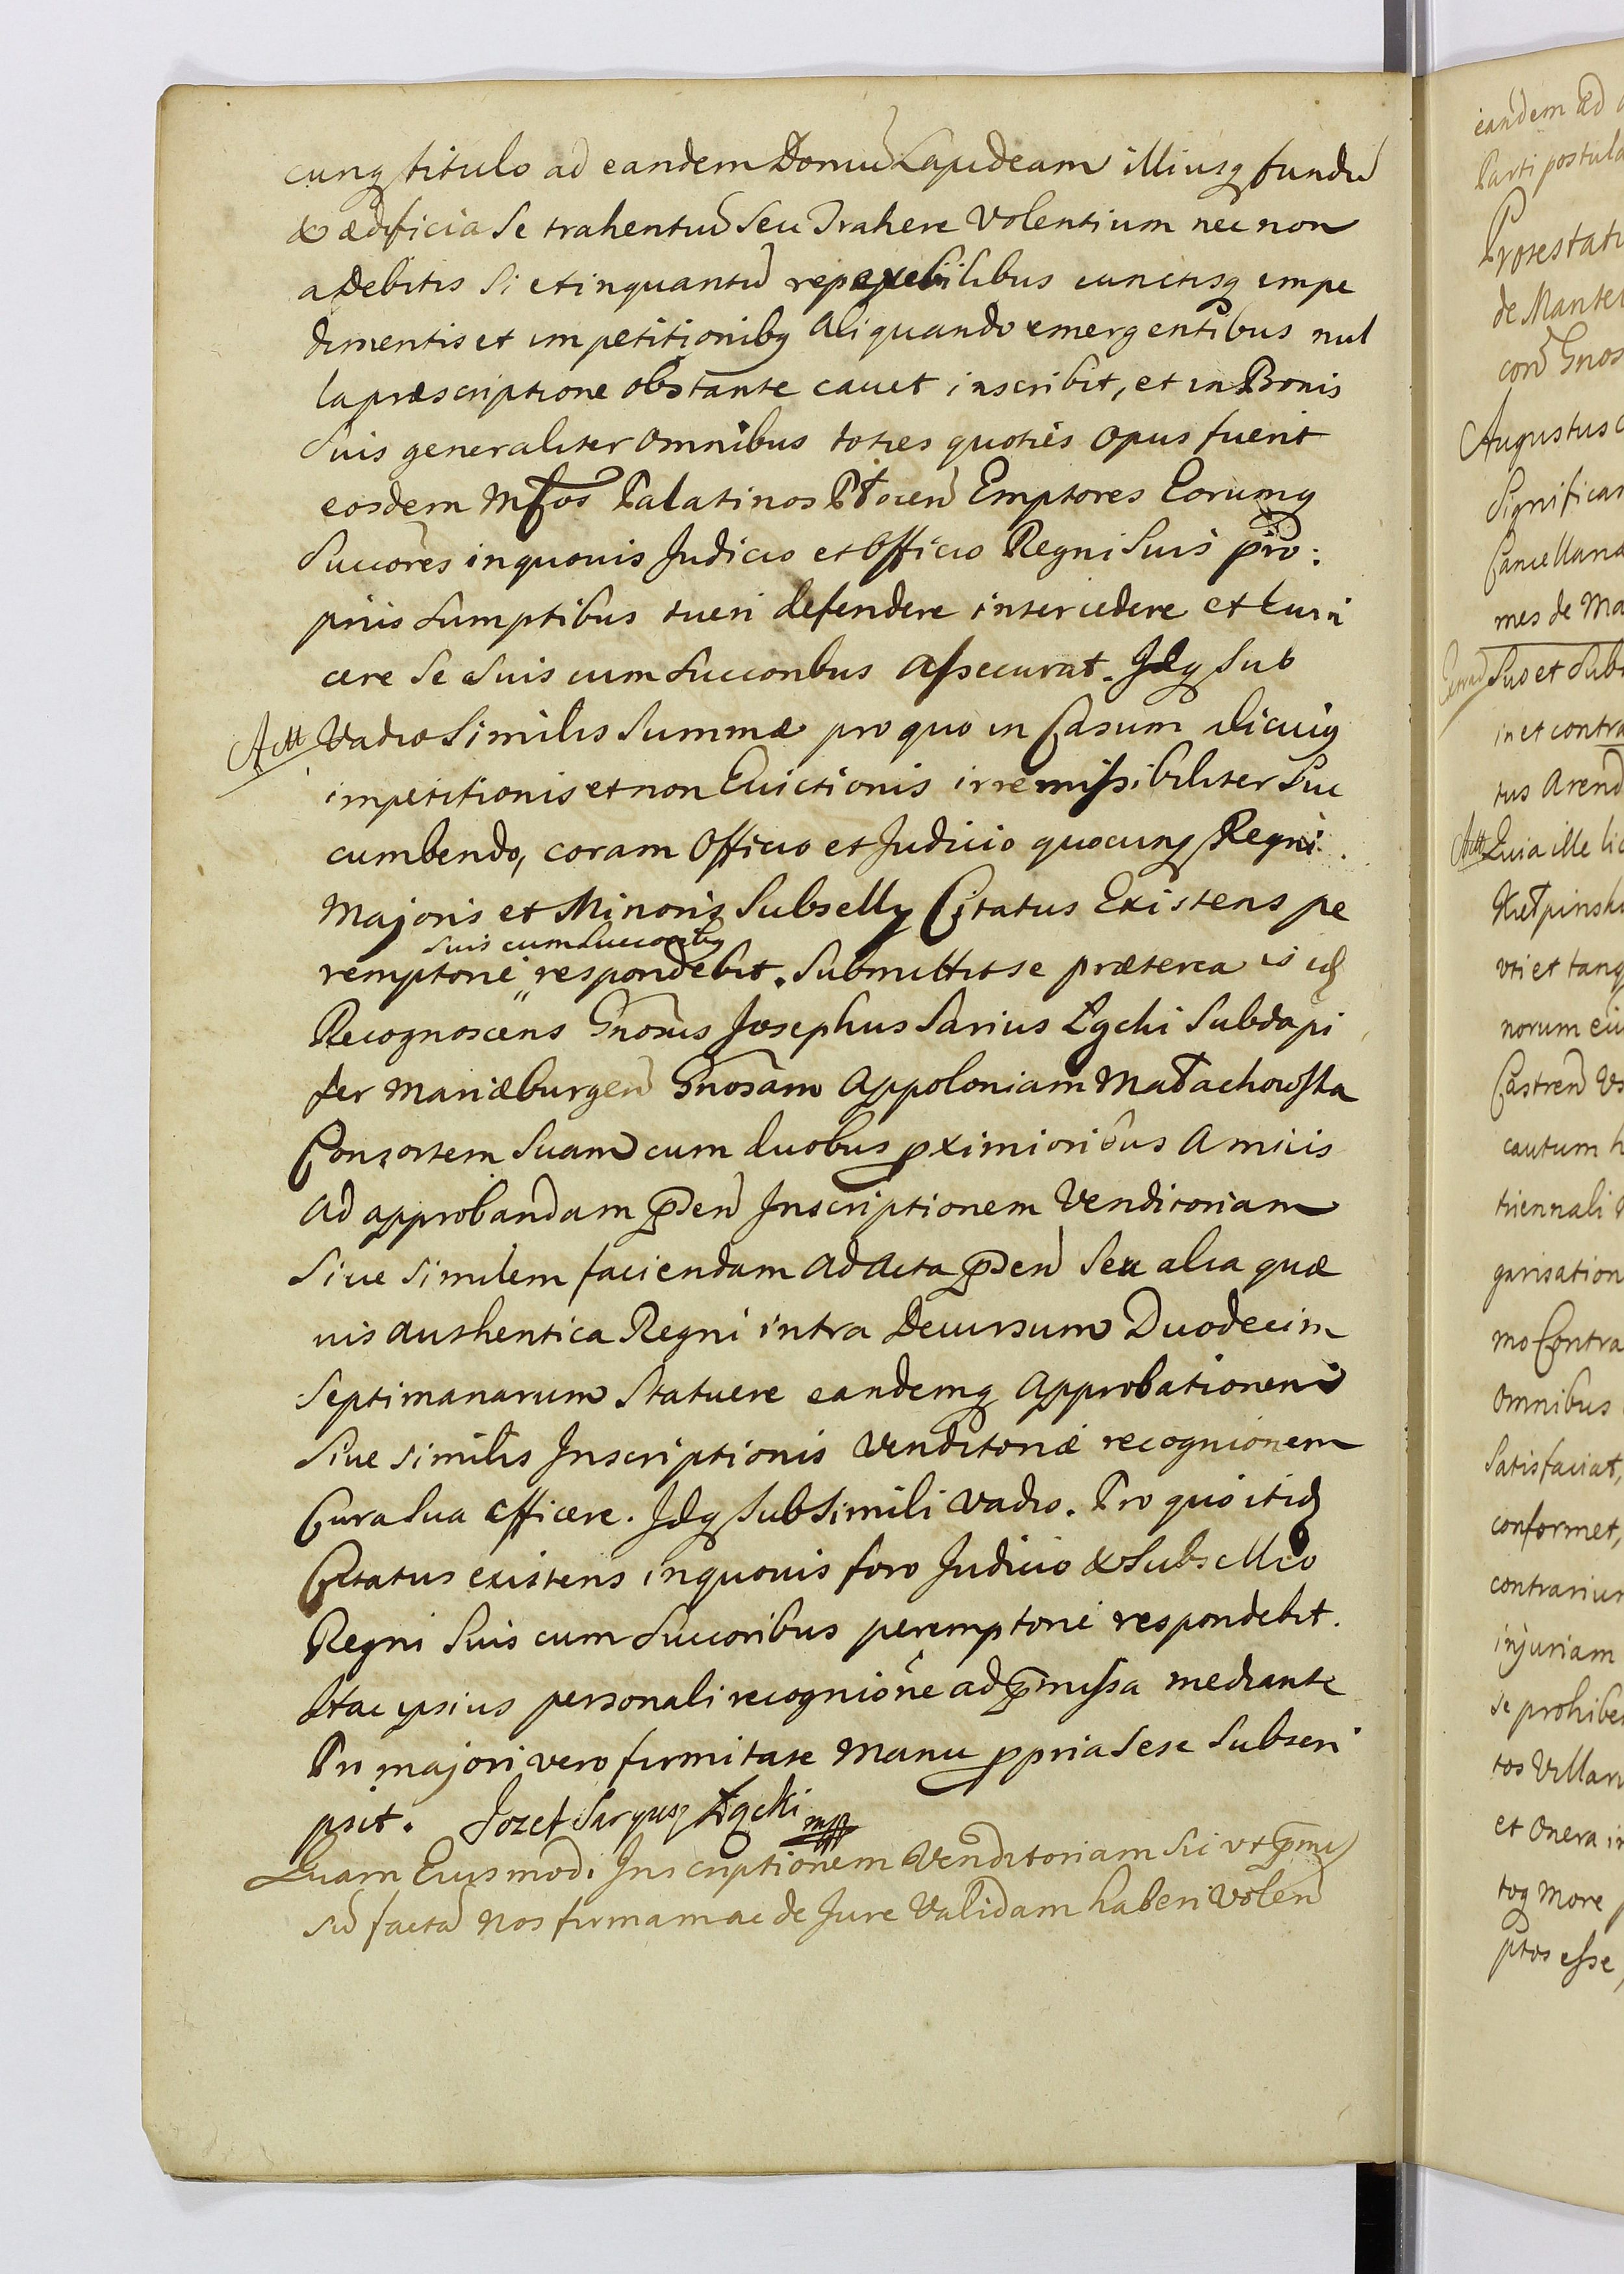 cunq titulo ad eandem Domũ Lapideam illiusq fundũ
& ædificia se trahentiũ seu Trahere volentium nec non
a Debitis si et inquantũ repexibilibus cunctisq impe
dimentis et impetitionibq aliquando emergentibus nul
la præscriptione obstante cavet inscribit, et in Bonis
suis generaliter omnibus toties quoties opus fuerit
eosdem Mfcos Palatinos Płocen Emptores Eorumq
Succores in quovis Judicio et Officio Regni suis pro:
priis sumptibus tueri defendere intercedere et Evin
cere se suis cum Succoribus assecurat. Idq sub
Actt Vadio similis summæ pro quo in Casum alicuiq
impetitionis et non Evictionis irremissibiliter suc
cumbendo, coram Officio et Judicio quocunq Regni
Majoris et Minoris Subselly Citatus Existens pe
suis cum Succoribq
remptorie " respondebit. Submittit se præterea is id
Recognoscens Gnosus Josephus Sarius Łącki Subdapi
fer Mariæburgen Gnosam Appoloniam Małachowska
Consortem Suam cum duobus pximioribus Amicis
ad approbandam pden Inscriptionem Venditoriam
sive similem faciendam ad Acta pden seu alia quæ
vis authentica Regni intra Decursum Duodecim
Septimanarum Statuere eandemq Approbationem
sive similis Inscriptionis Venditoriæ recognionem
Cura sua efficere. Idq sub simili vadio. Pro quo itid
Citatus existens in quovis foro Judicio & Subsellio
Regni suis cum Succoribus peremptorie respondebit.
Hac ipsius personali recognione ad pmissa mediante
Pri majori vero firmitate manu ppria sese subscri
psit. Jozef Saryusz Łącki mpp
Quam Eiusmodi Inscriptionem Venditoriam sic vt pmis
sũ factã nos firmam ac de Jure Validam haberi volen
eandem ad
Parti postula
Protestati
de Mante
corõ Gnos
Augustus
Significan
Cancellana
mes de Ma
Suo et Sub
in et contra
tus Arend
Actt Quia ille lic
vti et tanq
norum eiu
Castren Vs
cautum h
triennali
garisation
mo Contra
Omnibus
Satisfaciat,
conformet,
contrarium
injuriam
se prohibe
tos Villar
et Onera in
toq more
ptos esse,